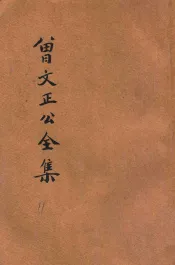 曾文正公全集
11